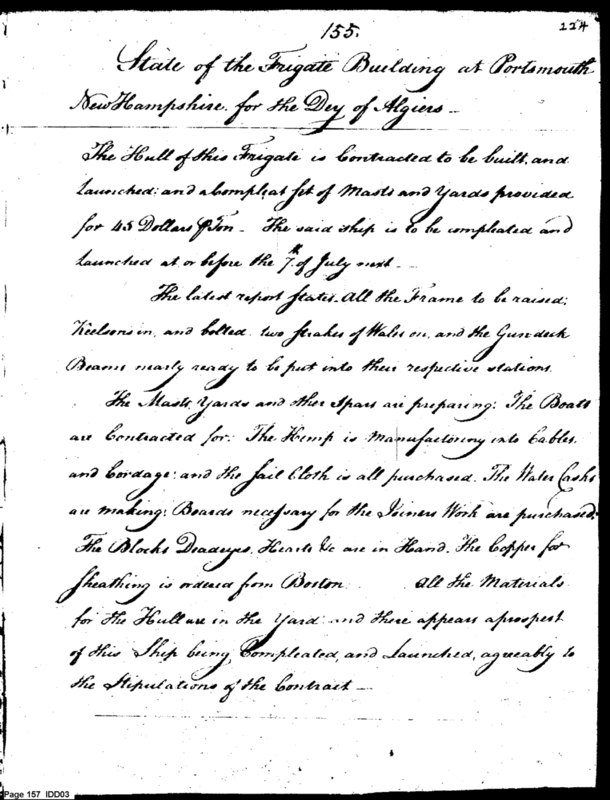 155.
224
State of the Frigate Building at Portsmouth
New Hampshire. for the Dey of Algiers —
The Hull of this Frigate is Contracted to be built, and
Launched: and a Compleat set of Masts and Yards provided
for 45 Dollars ⅌ Ton — The said Ship is to be compleated and
Launched at or before the 7th of July next —
The latest report states. All the Frame to be raised;
Keelsons in, and bolted. two strakes of Wales on, and the Gun deck
Beams nearly ready to be put into their respective stations.
The Masts, Yards and other Spars are preparing: The Boats
are Contracted for: The Hemp is Manufactoring into Cables
and Cordage: and the Sail Cloth is all purchased. The Water Casks
are making: Boards necessary for the Joiners Work are purchased,
The Blocks Deadeyes, Hearts &c are in Hand. The Copper for
Sheathing is ordered from Boston All the Materials
for the Hull are in the Yard: and there appears a prospect
of this Ship being Compleated, and Launched, agreeably to
the Stipulations of the Contract —
Page 157 IDD03